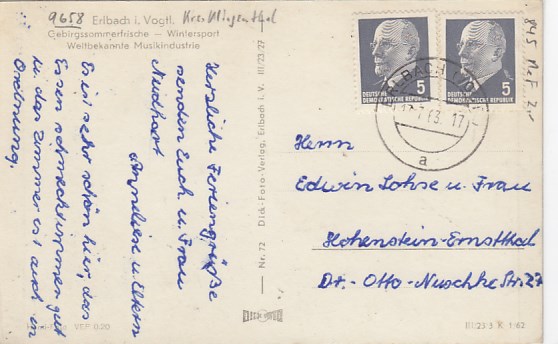 9658 Erlbach i. Vogtl. Krs. Klingenthal
Gebirgssommerfrische — Wintersport
Weltbekannte Musikindustrie
Herzliche Feriengrüße
senden Euch u. Frau
Neidhart
Anneliese u. Eltern
Es ist sehr schön hier, das
Essen schmeckt immer gut
u. das Zimmer ist auch in
Ordnung.
VEB
Nr. 72 Dick-Foto-Verlag, Erlbach i. V. III/23/27
DEUTSCHE
DEMOKRATISCHE REPUBLIK
5
DEUTSCHE
DEMOKRATISCHE REPUBLIK
5
ERLBACH (VOGTL)
63. 17
a
Herrn
Edwin Lohse u. Frau
Hohenstein-Ernstthal
Dr.-Otto-Nuschke Str. 27
III 23 3 K 1/62